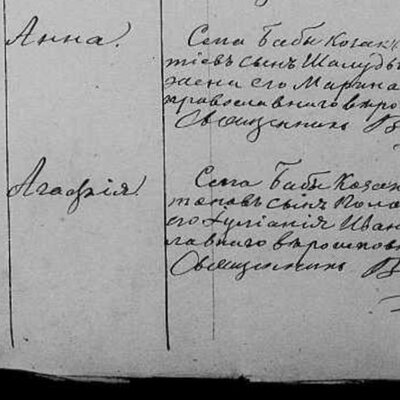 Анна.
Села Бабы Козакъ
тіевъ сынъ Шалудь
жены его Марина
православнаго вѣро
Священникъ В
Агафія.
Села Бабы Козак
таповъ сынъ Коло
его Іуліанія Иван
лавнаго вѣроиспов
Священникъ В